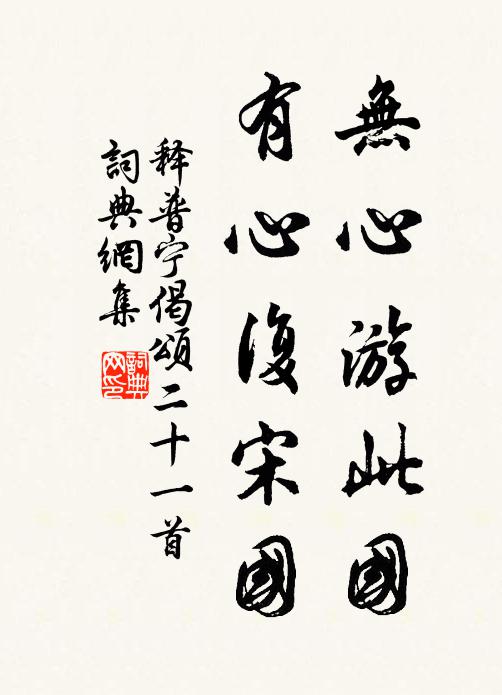 無心游此國
有心復宋國
释普宁偈頌二十一首
詞典網集
詞典网印